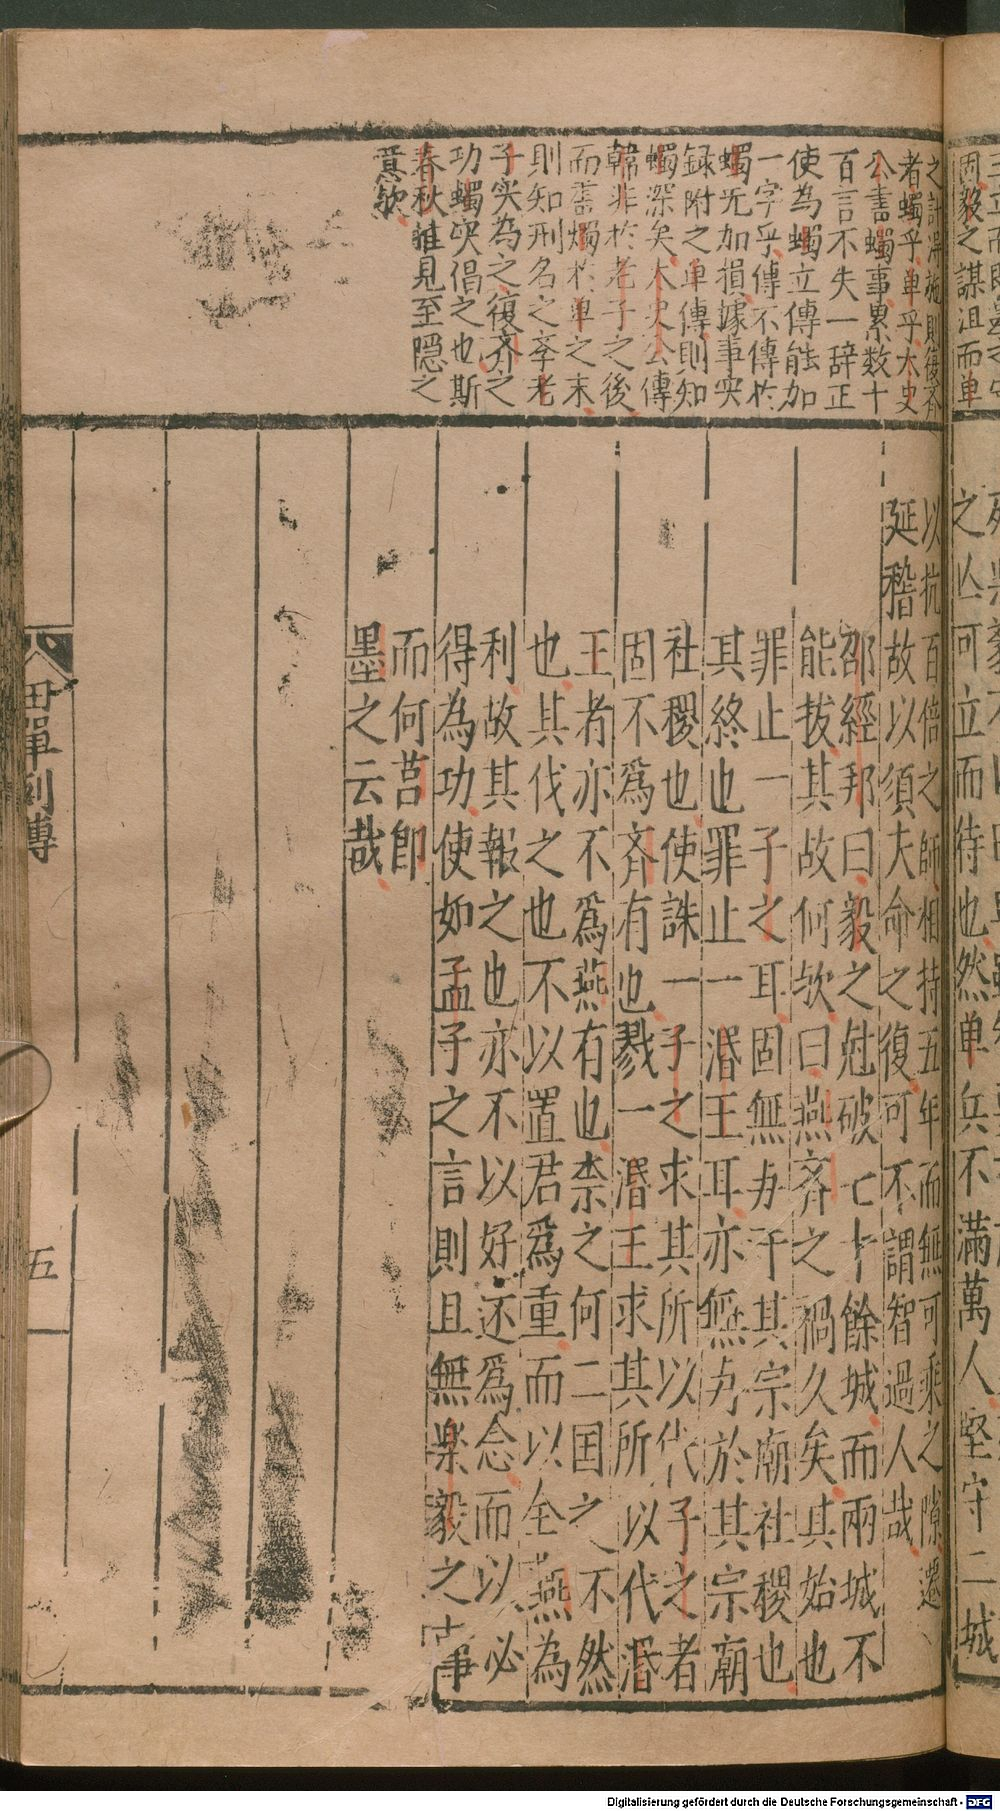 之計得施則復齊
者蠋乎單乎太史
公書蠋事累数十
百言不失一辞正
使為蠋立傳能加
一字乎傳不傳於
蠋无加損據事实
録附之单傳則知
蠋深矣太史公傳
韓非於老子之後
而書燭於单之末
則知刑名之李老
子实為之復齐之
功蠋实倡之也斯
春秋推見至隠之
意欤
之亾可立而待也然单兵不滿萬人堅守二城
以抗百倍之師相持五年而無可乘之隙遷
延稽故以須夫命之復可不謂智過人哉
邵經邦曰毅之尅破七十餘城而兩城不
能拔其故何欤曰燕齊之禍久矣其始也
罪止一子之耳固無与于其宗廟社稷也
其終也罪止一湣王耳亦無与於其宗廟
社稷也使誅一子之求其所以代子之者
固不爲齊有也戮一湣王求其所以代湣
王者亦不爲燕有也柰之何二国之不然
也其伐之也不以置君爲重而以全燕為
利故其報之也亦不以好还爲念而以必
得為功使如孟子之言則且無楽毅之事
而何莒即
墨之云哉
田單列傳
五
Digitalisierung gefördert durch die Deutsche Forschungsgemeinschaft - DFG